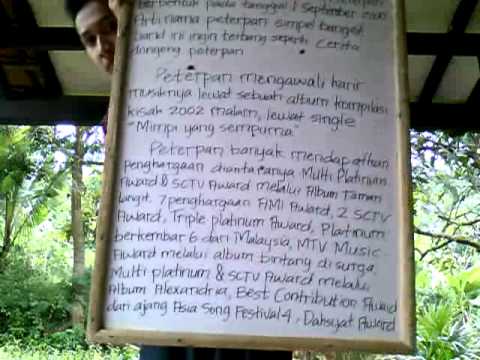 berbentuk pada tanggal 1 september
Arti nama peterpan simpel banget
band ini ingin terbang seperti cerita
dongeng peterpan
Peterpan mengawali karir
musiknya lewat sebuah album kompilasi
kisah 2002 malam, lewat single
"Mimpi yang sempurna"
Peterpan banyak mendapatkan
penghargaan diantaranya Multi Platinum
Award & SCTV Award melalui Album Taman
langit. 7 penghargaan AMI Award, 2 SCTV
Award, Triple platinum Award, Platinum
berkembar 6 dari Malaysia, MTV Music
Award melalui album bintang di surga,
Multi platinum & SCTV Award melalui
Album Alexandria, Best Contribution Award
dari ajang Asia Song Festival 4, Dahsyat Award